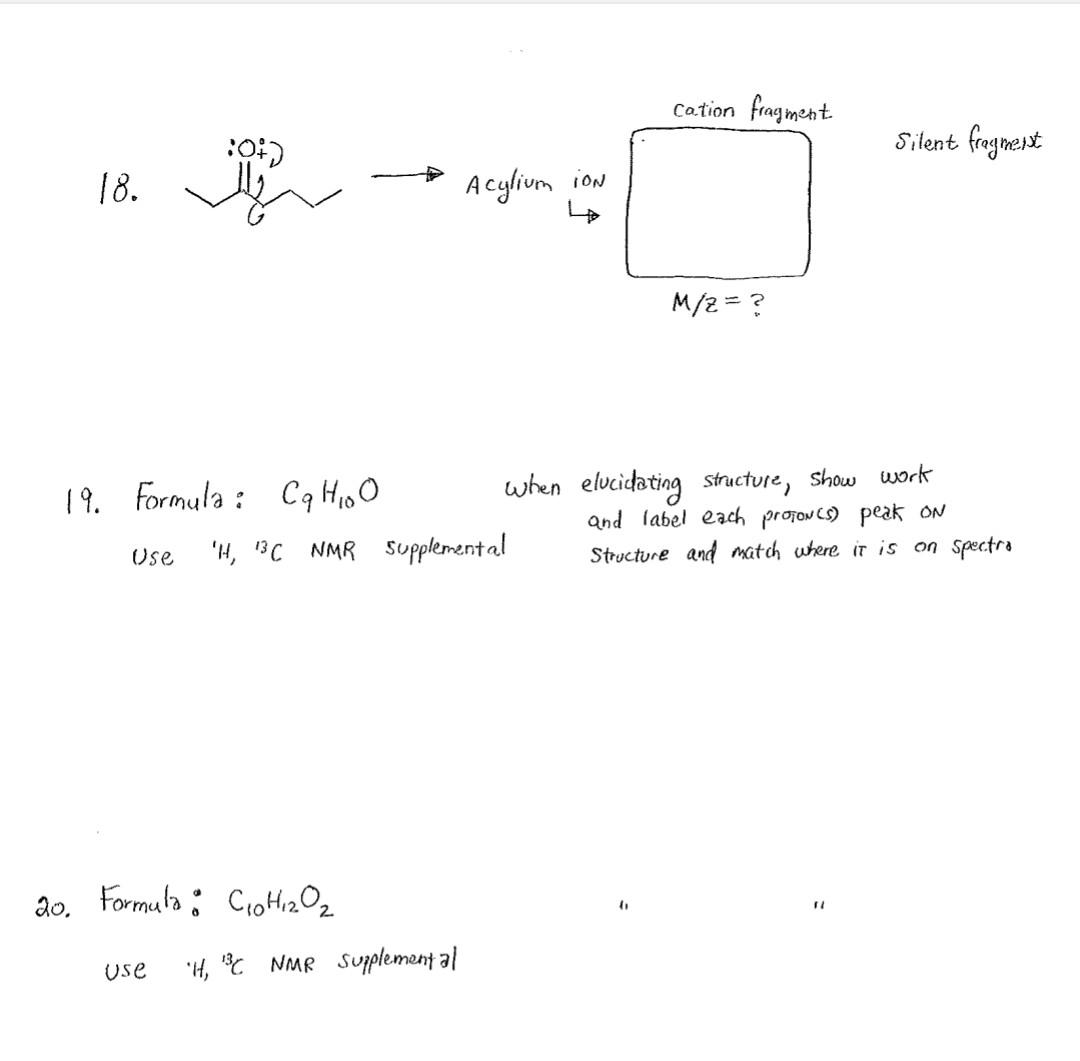 Cation fragment
Silent fragment
:O:
18.
Acylium ion
M/z = ?
19. Formula: C9H10O
When elucidating structure, show work
and label each proton(s) peak on
Use ¹H, ¹³C NMR Supplemental
Structure and match where it is on spectra
20. Formula: C10H12O2
" "
use ¹H, ¹³C NMR supplemental